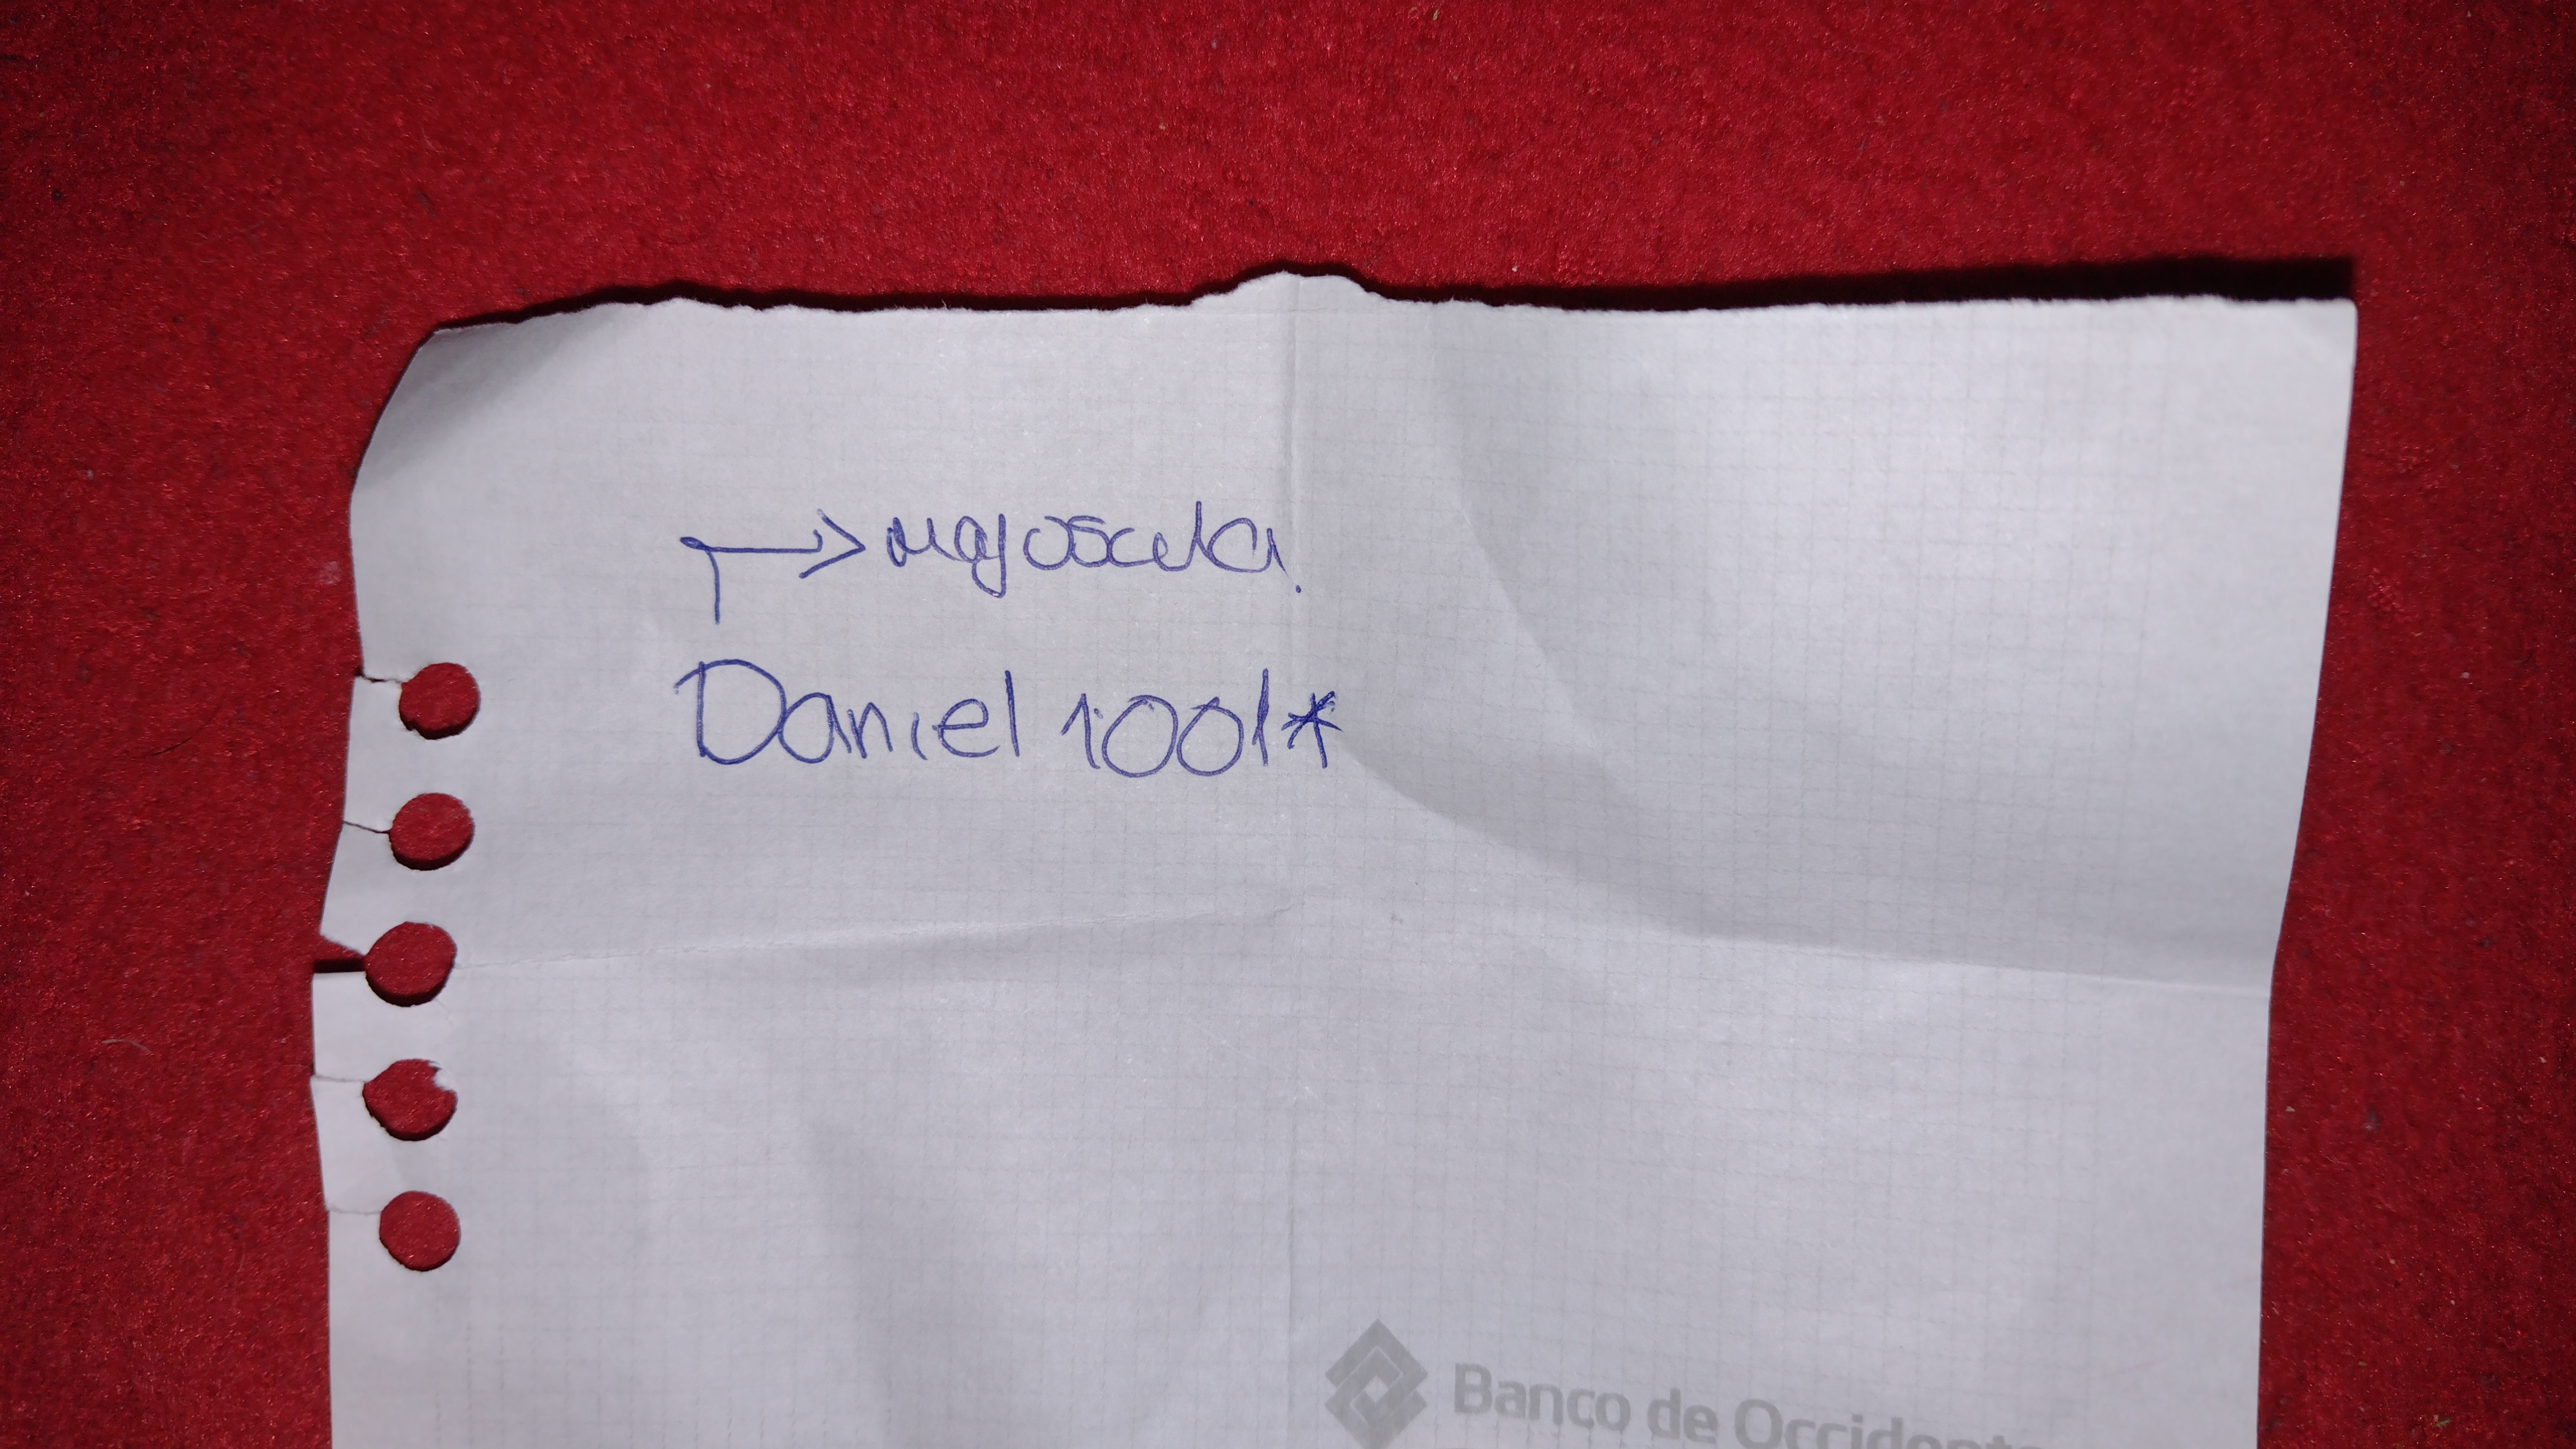 → mayoscula.
Daniel 1001*
Banco de Occidente